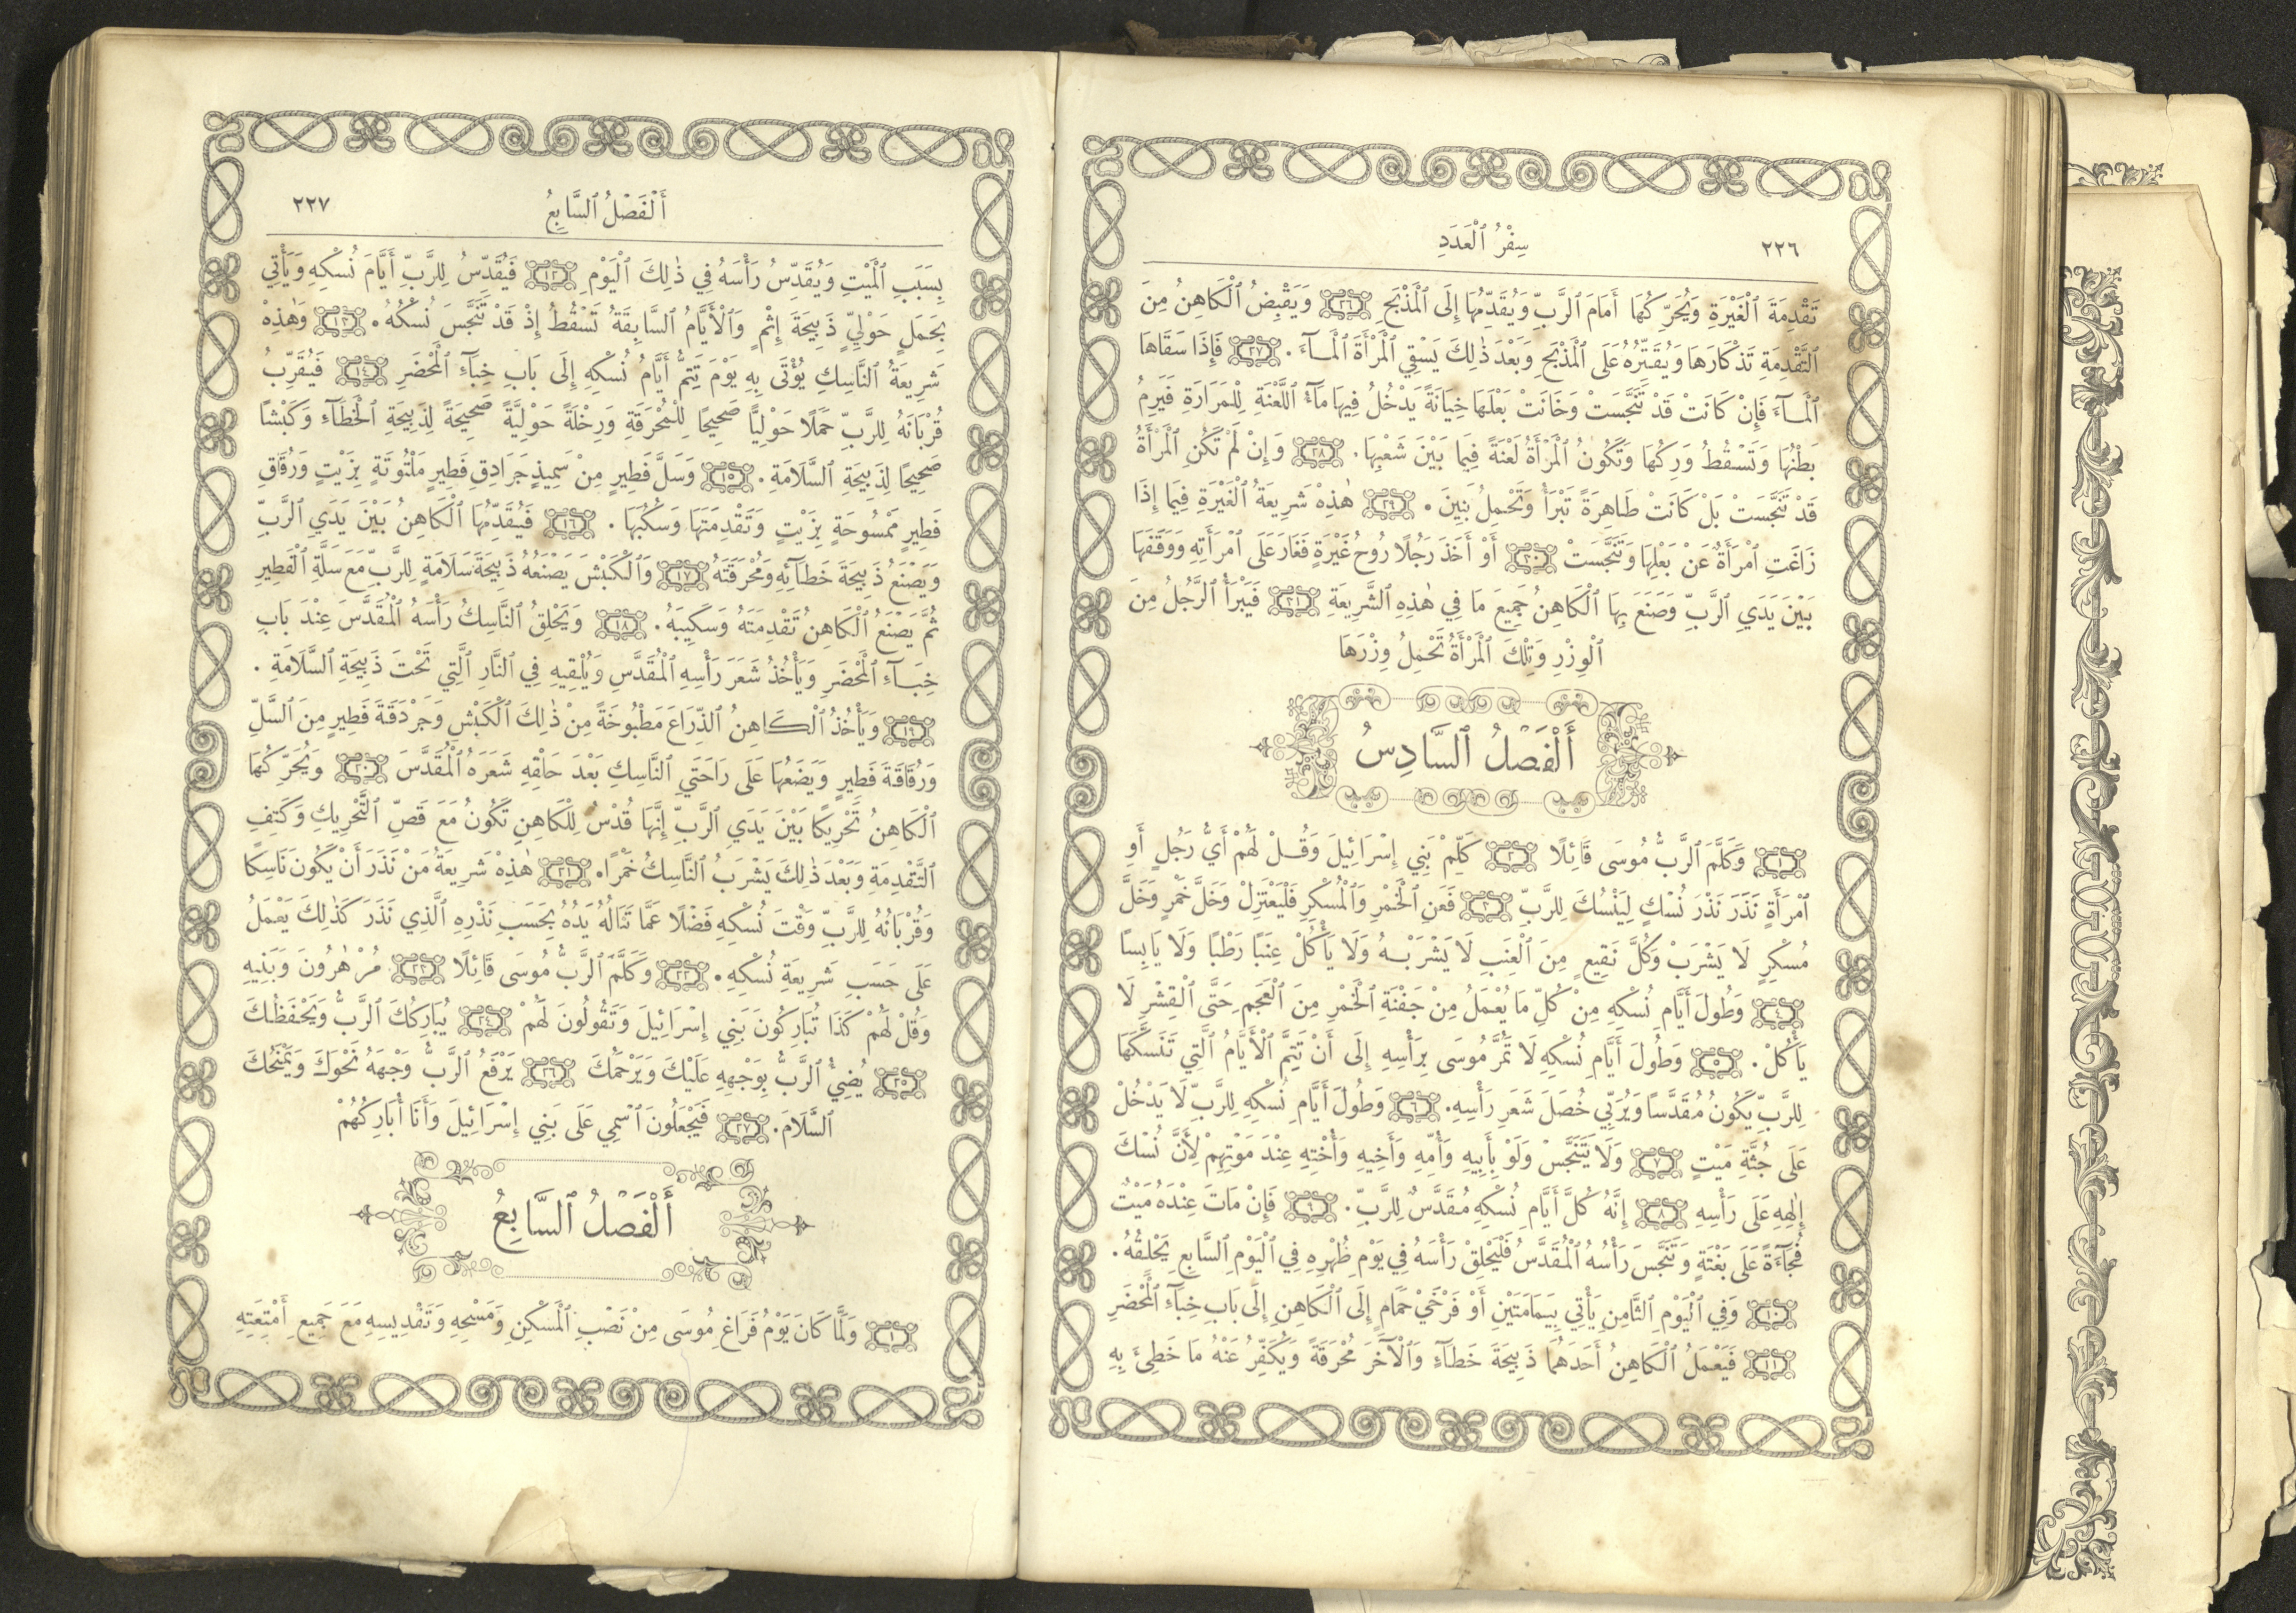 ٢٢٦
سِفْرُ ٱلْعَدَدِ
تَقْدِمَةَ ٱلْغَيْرَةِ وَيُحَرِّكُهَا أَمَامَ ٱلرَّبِّ وَيُقَدِّمُهَا إِلَى ٱلْمَذْبَحِ ٢٦ وَيَقْبِضُ ٱلْكَاهِنُ مِنَ
ٱلتَّقْدِمَةِ تَذْكَارَهَا وَيُقَتِّرُهُ عَلَى ٱلْمَذْبَحِ وَبَعْدَ ذٰلِكَ يَسْقِي ٱلْمَرْأَةَ ٱلْمَآءَ. ٢٧ فَإِذَا سَقَاهَا
ٱلْمَآءَ فَإِنْ كَانَتْ قَدْ تَنَجَّسَتْ وَخَانَتْ بَعْلَهَا خِيَانَةً يَدْخُلُ فِيهَا مَآءُ ٱللَّعْنَةِ لِلْمَرَارَةِ فَيَرِمُ
بَطْنُهَا وَتَسْقُطُ وَرِكُهَا وَتَكُونُ ٱلْمَرْأَةُ لَعْنَةً فِيمَا بَيْنَ شَعْبِهَا. ٢٨ وَإِنْ لَمْ تَكُنِ ٱلْمَرْأَةُ
قَدْ تَنَجَّسَتْ بَلْ كَانَتْ طَاهِرَةً تَبْرَأُ وَتَحْمِلُ بَنِينَ. ٢٩ هٰذِهْ شَرِيعَةُ ٱلْغَيْرَةِ فِيمَا إِذَا
زَاغَتِ ٱمْرَأَةٌ عَنْ بَعْلِهَا وَتَنَجَّسَتْ ٣٠ أَوْ أَخَذَ رَجُلًا رُوحُ غَيْرَةٍ فَغَارَ عَلَى ٱمْرَأَتِهِ وَوَقَفَهَا
بَيْنَ يَدَيِ ٱلرَّبِّ وَصَنَعَ بِهَا ٱلْكَاهِنُ جَمِيعَ مَا فِي هٰذِهِ ٱلشَّرِيعَةِ ٣١ فَيَبْرَأُ ٱلرَّجُلُ مِنَ
ٱلْوِزْرِ وَتِلْكَ ٱلْمَرْأَةُ تَحْمِلُ وِزْرَهَا
أَلْفَصْلُ ٱلسَّادِسُ
١ وَكَلَّمَ ٱلرَّبُّ مُوسَى قَائِلًا ٢ كَلِّمْ بَنِي إِسْرَائِيلَ وَقُلْ لَهُمْ أَيُّ رَجُلٍ أَوِ
ٱمْرَأَةٍ نَذَرَ نَذْرَ نُسْكٍ لِيَنْسُكَ لِلرَّبِّ ٣ فَعَنِ ٱلْخَمْرِ وَٱلْمُسْكِرِ فَلْيَعْتَزِلْ وَخَلَّ خَمْرٍ وَخَلَّ
مُسْكِرٍ لَا يَشْرَبْ وَكُلَّ نَقِيعٍ مِنَ ٱلْعِنَبِ لَا يَشْرَبْهُ وَلَا يَأْكُلْ عِنَبًا رَطْبًا وَلَا يَابِسًا
٤ وَطُولَ أَيَّامِ نُسْكِهِ مِنْ كُلِّ مَا يُعْمَلُ مِنْ جَفْنَةِ ٱلْخَمْرِ مِنَ ٱلْعَجَمِ حَتَّى ٱلْقِشْرِ لَا
يَأْكُلْ. ٥ وَطُولَ أَيَّامِ نُسْكِهِ لَا تَمُرَّ مُوسَى بِرَأْسِهِ إِلَى أَنْ تَتِمَّ ٱلْأَيَّامُ ٱلَّتِي تَنَسَّكَهَا
لِلرَّبِّ يَكُونُ مُقَدَّسًا وَيُرَبِّي خُصَلَ شَعَرِ رَأْسِهِ. ٦ وَطُولَ أَيَّامِ نُسْكِهِ لِلرَّبِّ لَا يَدْخُلْ
عَلَى جُثَّةِ مَيْتٍ ٧ وَلَا يَتَنَجَّسْ وَلَوْ بِأَبِيهِ وَأُمِّهِ وَأَخِيهِ وَأُخْتِهِ عِنْدَ مَوْتِهِمْ لِأَنَّ نُسْكَ
إِلٰهِهِ عَلَى رَأْسِهِ ٨ إِنَّهُ كُلَّ أَيَّامِ نُسْكِهِ مُقَدَّسٌ لِلرَّبِّ. ٩ فَإِنْ مَاتَ عِنْدَهُ مَيْتٌ
فُجَآءَةً عَلَى بَغْتَةٍ وَتَنَجَّسَ رَأْسُهُ ٱلْمُقَدَّسُ فَلْيَحْلِقْ رَأْسَهُ فِي يَوْمِ طُهْرِهِ فِي ٱلْيَوْمِ ٱلسَّابِعِ يَحْلِقُهُ.
١٠ وَفِي ٱلْيَوْمِ ٱلثَّامِنِ يَأْتِي بِيَمَامَتَيْنِ أَوْ فَرْخَيْ حَمَامٍ إِلَى ٱلْكَاهِنِ إِلَى بَابِ خِبَآءِ ٱلْمَحْضَرِ
١١ فَيَعْمَلُ ٱلْكَاهِنُ أَحَدَهُمَا ذَبِيحَةَ خَطَآءٍ وَٱلْآخَرَ مُحْرَقَةً وَيُكَفِّرُ عَنْهُ مَا خَطِئَ بِهِ
أَلْفَصْلُ ٱلسَّابِعُ
٢٢٧
بِسَبَبِ ٱلْمَيْتِ وَيُقَدِّسُ رَأْسَهُ فِي ذٰلِكَ ٱلْيَوْمِ ١٢ فَيُقَدِّسُ لِلرَّبِّ أَيَّامَ نُسْكِهِ وَيَأْتِي
بِحَمَلٍ حَوْلِيٍّ ذَبِيحَةَ إِثْمٍ وَٱلْأَيَّامُ ٱلسَّابِقَةُ تَسْقُطُ إِذْ قَدْ تَنَجَّسَ نُسْكُهُ. ١٣ وَهٰذِهْ
شَرِيعَةُ ٱلنَّاسِكِ يُؤْتَى بِهِ يَوْمَ تَتِمُّ أَيَّامُ نُسْكِهِ إِلَى بَابِ خِبَآءِ ٱلْمَحْضَرِ ١٤ فَيُقَرِّبُ
قُرْبَانَهُ لِلرَّبِّ حَمَلًا حَوْلِيًّا صَحِيحًا لِلْمُحْرَقَةِ وَرِخْلَةً حَوْلِيَّةً صَحِيحَةً لِذَبِيحَةِ ٱلْخَطَآءِ وَكَبْشًا
صَحِيحًا لِذَبِيحَةِ ٱلسَّلَامَةِ. ١٥ وَسَلَّ فَطِيرٍ مِنْ سَمِيذٍ جَرَادِقِ فَطِيرٍ مَلْتُوتَةٍ بِزَيْتٍ وَرُقَاقِ
فَطِيرٍ مَمْسُوحَةٍ بِزَيْتٍ وَتَقْدِمَتَهَا وَسَكْبَهَا. ١٦ فَيُقَدِّمُهَا ٱلْكَاهِنُ بَيْنَ يَدَيِ ٱلرَّبِّ
وَيَصْنَعُ ذَبِيحَةَ خَطَآئِهِ وَمُحْرَقَتَهُ ١٧ وَٱلْكَبْشَ يَصْنَعُهُ ذَبِيحَةَ سَلَامَةٍ لِلرَّبِّ مَعَ سَلَّةِ ٱلْفَطِيرِ
ثُمَّ يَصْنَعُ ٱلْكَاهِنُ تَقْدِمَتَهُ وَسَكِيبَهُ. ١٨ وَيَحْلِقُ ٱلنَّاسِكُ رَأْسَهُ ٱلْمُقَدَّسَ عِنْدَ بَابِ
خِبَآءِ ٱلْمَحْضَرِ وَيَأْخُذُ شَعَرَ رَأْسِهِ ٱلْمُقَدَّسِ وَيُلْقِيهِ فِي ٱلنَّارِ ٱلَّتِي تَحْتَ ذَبِيحَةِ ٱلسَّلَامَةِ.
١٩ وَيَأْخُذُ ٱلْكَاهِنُ ٱلذِّرَاعَ مَطْبُوخَةً مِنْ ذٰلِكَ ٱلْكَبْشِ وَجَرْدَقَةَ فَطِيرٍ مِنَ ٱلسَّلِّ
وَرُقَاقَةَ فَطِيرٍ وَيَضَعُهَا عَلَى رَاحَتَيِ ٱلنَّاسِكِ بَعْدَ حَلْقِهِ شَعَرَهُ ٱلْمُقَدَّسَ ٢٠ وَيُحَرِّكُهَا
ٱلْكَاهِنُ تَحْرِيكًا بَيْنَ يَدَيِ ٱلرَّبِّ إِنَّهَا قُدْسٌ لِلْكَاهِنِ تَكُونُ مَعَ قَصِّ ٱلتَّحْرِيكِ وَكَتِفِ
ٱلتَّقْدِمَةِ وَبَعْدَ ذٰلِكَ يَشْرَبُ ٱلنَّاسِكُ خَمْرًا. ٢١ هٰذِهْ شَرِيعَةُ مَنْ نَذَرَ أَنْ يَكُونَ نَاسِكًا
وَقُرْبَانُهُ لِلرَّبِّ وَقْتَ نُسْكِهِ فَضْلًا عَمَّا تَنَالُهُ يَدُهُ بِحَسَبِ نَذْرِهِ ٱلَّذِي نَذَرَ كَذٰلِكَ يَعْمَلُ
عَلَى حَسَبِ شَرِيعَةِ نُسْكِهِ. ٢٢ وَكَلَّمَ ٱلرَّبُّ مُوسَى قَائِلًا ٢٣ مُرْ هٰرُونَ وَبَنِيهِ
وَقُلْ لَهُمْ كَذَا تُبَارِكُونَ بَنِي إِسْرَائِيلَ وَتَقُولُونَ لَهُمْ ٢٤ يُبَارِكُكَ ٱلرَّبُّ وَيَحْفَظُكَ
٢٥ يُضِيْءُ ٱلرَّبُّ بِوَجْهِهِ عَلَيْكَ وَيَرْحَمُكَ ٢٦ يَرْفَعُ ٱلرَّبُّ وَجْهَهُ نَحْوَكَ وَيَمْنَحُكَ
ٱلسَّلَامَ. ٢٧ فَيَجْعَلُونَ ٱسْمِي عَلَى بَنِي إِسْرَائِيلَ وَأَنَا أُبَارِكُهُمْ
أَلْفَصْلُ ٱلسَّابِعُ
١ وَلَمَّا كَانَ يَوْمُ فَرَاغِ مُوسَى مِنْ نَصْبِ ٱلْمَسْكِنِ وَمَسْحِهِ وَتَقْدِيسِهِ مَعَ جَمِيعِ أَمْتِعَتِهِ